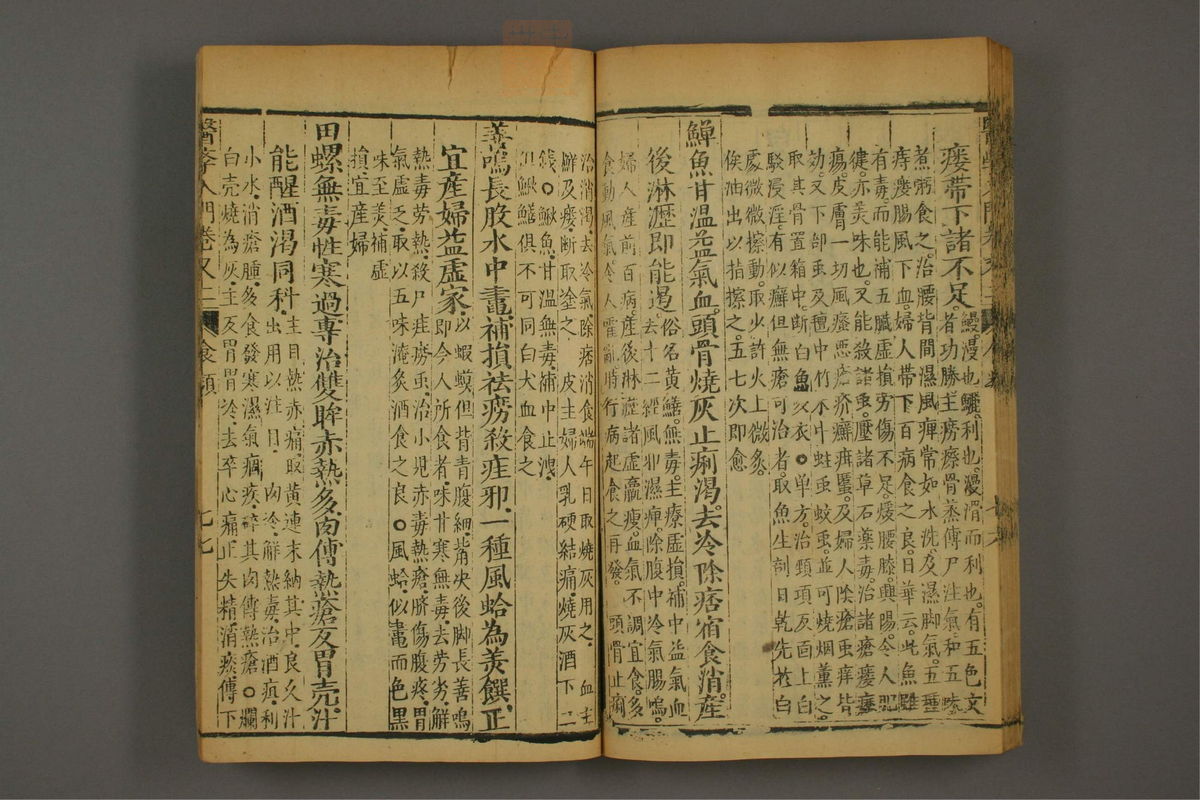 瘻帶下諸不足鰻漫也鱺利也漫滑而利也有五色文
者功勝主癆瘵骨蒸傳尸注氣和五味
煮粥食之治腰背間濕風痺常如水洗及濕脚氣五種
痔瘻腸風下血婦人帶下百病食之良日華云此魚雖
有毒而能補五臟虛損勞傷不足煖腰膝興陽令人肥
健亦美味也又能殺諸虫壓諸草石藥毒治諸瘡瘻
瘍皮膚一切風瘙惡瘡疥癬痱䘌及婦人陰瘡虫痒皆
効又下部虫及氊中竹木中蛀虫蚊虫並可燒烟薰之
取其骨置箱中斷白魚 衣○單方治頸項及面上白
駁浸淫有似癬但無瘡可治者取魚生剖日乾先於白
處微微擦動取少許火上微炙
俟油出以指擦之五七次即愈
鱓魚甘溫益氣血頭骨燒灰止痢渴去冷除痞宿食消產
後淋瀝即能遏俗名黃鱔無毒主療虛損補中益氣血
去十二經風邪濕痺除腹中冷氣腸鳴
婦人產前百病產後淋瀝諸虛羸瘦血氣不調宜食多
食動風氣令人霍亂時行病起食之再發 頭骨止痢
治消渴去冷氣除痞消食端午日取燒灰用之 血主
癬及瘻斷取塗之 皮主婦人乳硬結痛燒灰酒下二
錢○鰍魚甘溫無毒補中止洩
但鰍鱔俱不可同白犬血食之
善鳴長股水中鼃補損祛癆殺疰邪一種風蛤為羹饌正
宜產婦益虛家以蝦蟆但背青腹細嘴尖後脚長善鳴
即今人所食者味甘寒無毒去勞劣解
熱毒勞熱殺尸疰癆虫治小兒赤毒熱瘡臍傷腹疼胃
氣虛乏取以五味淹炙酒食之良○風蛤似鼃而色黑
味至美補虛
損宜產婦
田螺無毒性寒過專治雙眸赤熱多肉傅熱瘡反胃殼汁
能醒酒渴同科主目熱赤痛取黃連末納其中良久汁
出用以注目 肉冷解熱毒治酒疸利
小水消瘡腫多食發寒濕氣痼疾碎其肉傅熱瘡○爛
白殼燒為灰主反胃胃冷去卒心痛止失精消痰傅下
醫學入門卷又二 食類 七七